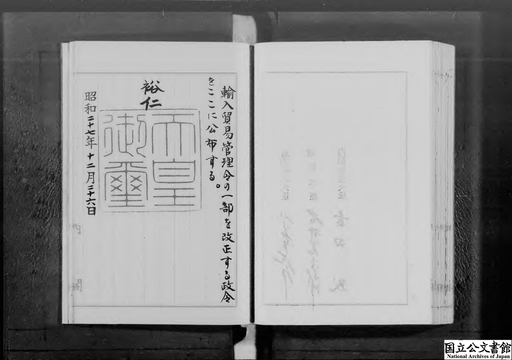 輸入貿易管理令の一部を改正する政令
をここに公布する。
裕仁
天皇
御璽
昭和二十七年十二月二十六日
国立公文書館
National Archives of Japan